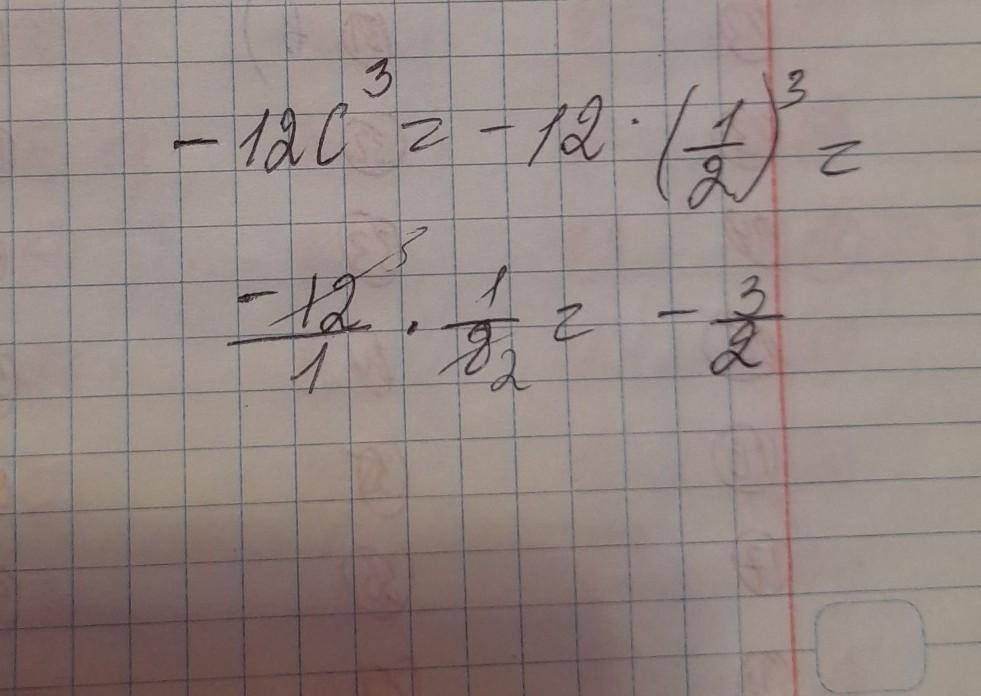 -12C³ = -12 · (1/2)³ =
-12/1 3 · 1/8 2 = -3/2